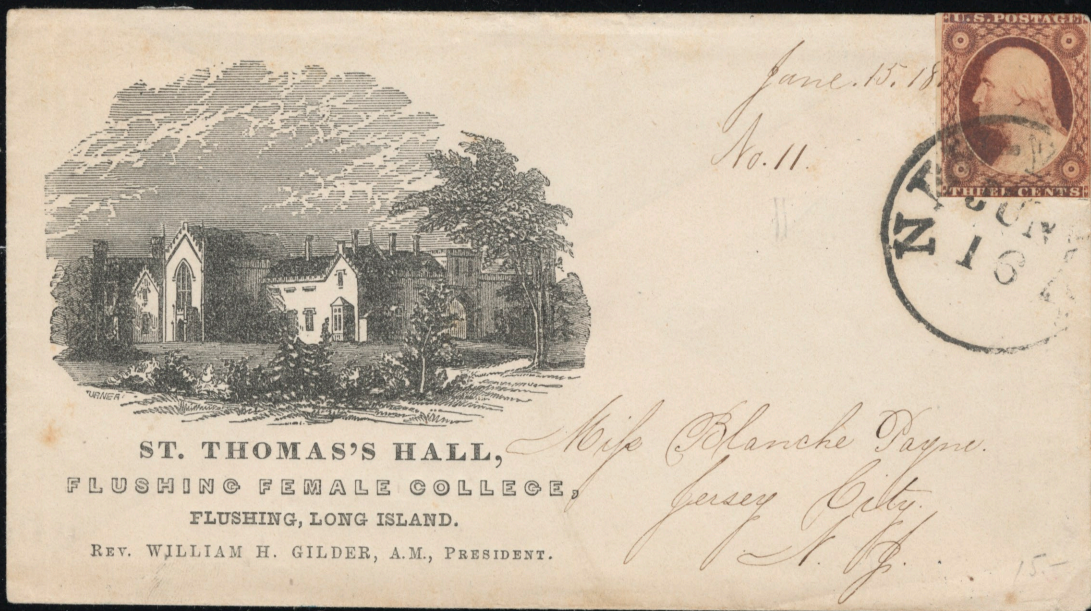 June. 15. 18
No. 11.
U.S. POSTAGE
THREE CENTS
N Y
JUN
16
TURNER
ST. THOMAS'S HALL,
FLUSHING FEMALE COLLEGE,
FLUSHING, LONG ISLAND.
REV. WILLIAM H. GILDER, A.M., PRESIDENT.
Miss Blanche Payne.
Jersey City.
N. J.
15.-